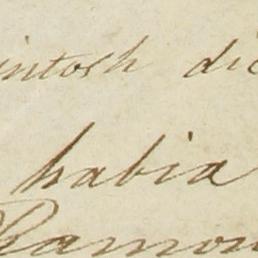 intosh di
habia
Ramon